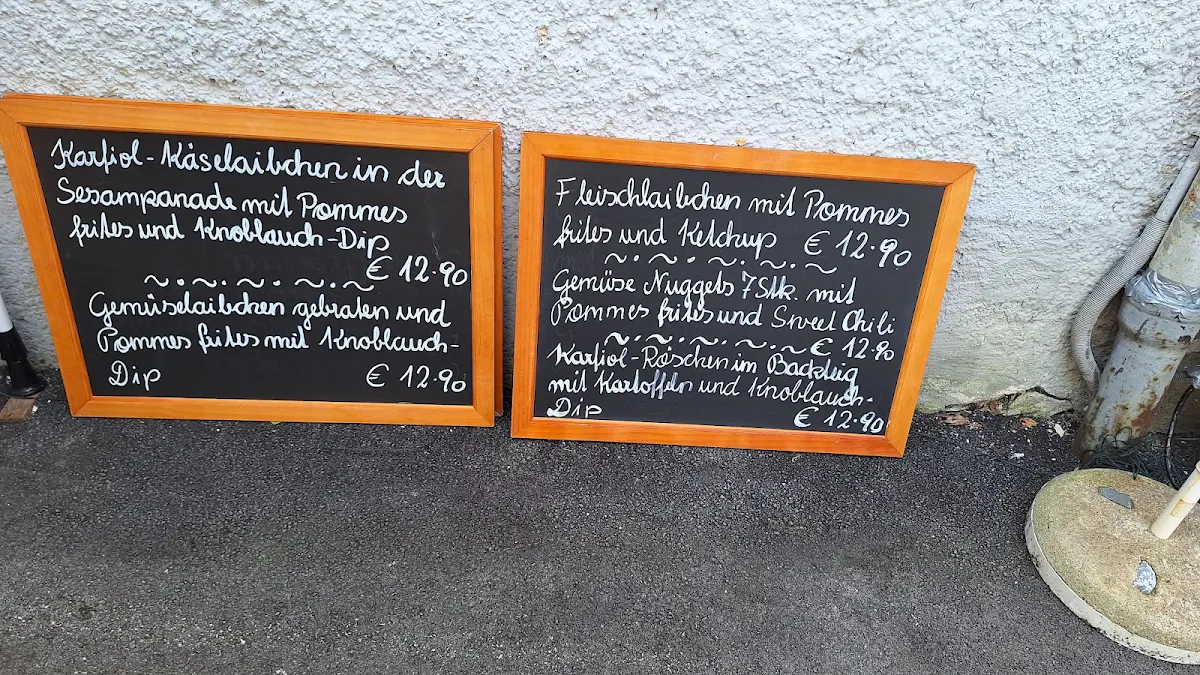 Karfiol-Käselaibchen in der
Sesampanade mit Pommes
frites und Knoblauch-Dip
€ 12.90
~.~.~.~.~
Gemüselaibchen gebraten und
Pommes frites mit Knoblauch-
Dip € 12.90
Fleischlaibchen mit Pommes
frites und Ketchup € 12.90
~.~.~.~.~
Gemüse Nuggets 7 Stk. mit
Pommes frites und Sweet Chili
~.~.~.~.~ € 12.90
Karfiol-Röschen im Backteig
mit Kartoffeln und Knoblauch-
Dip € 12.90